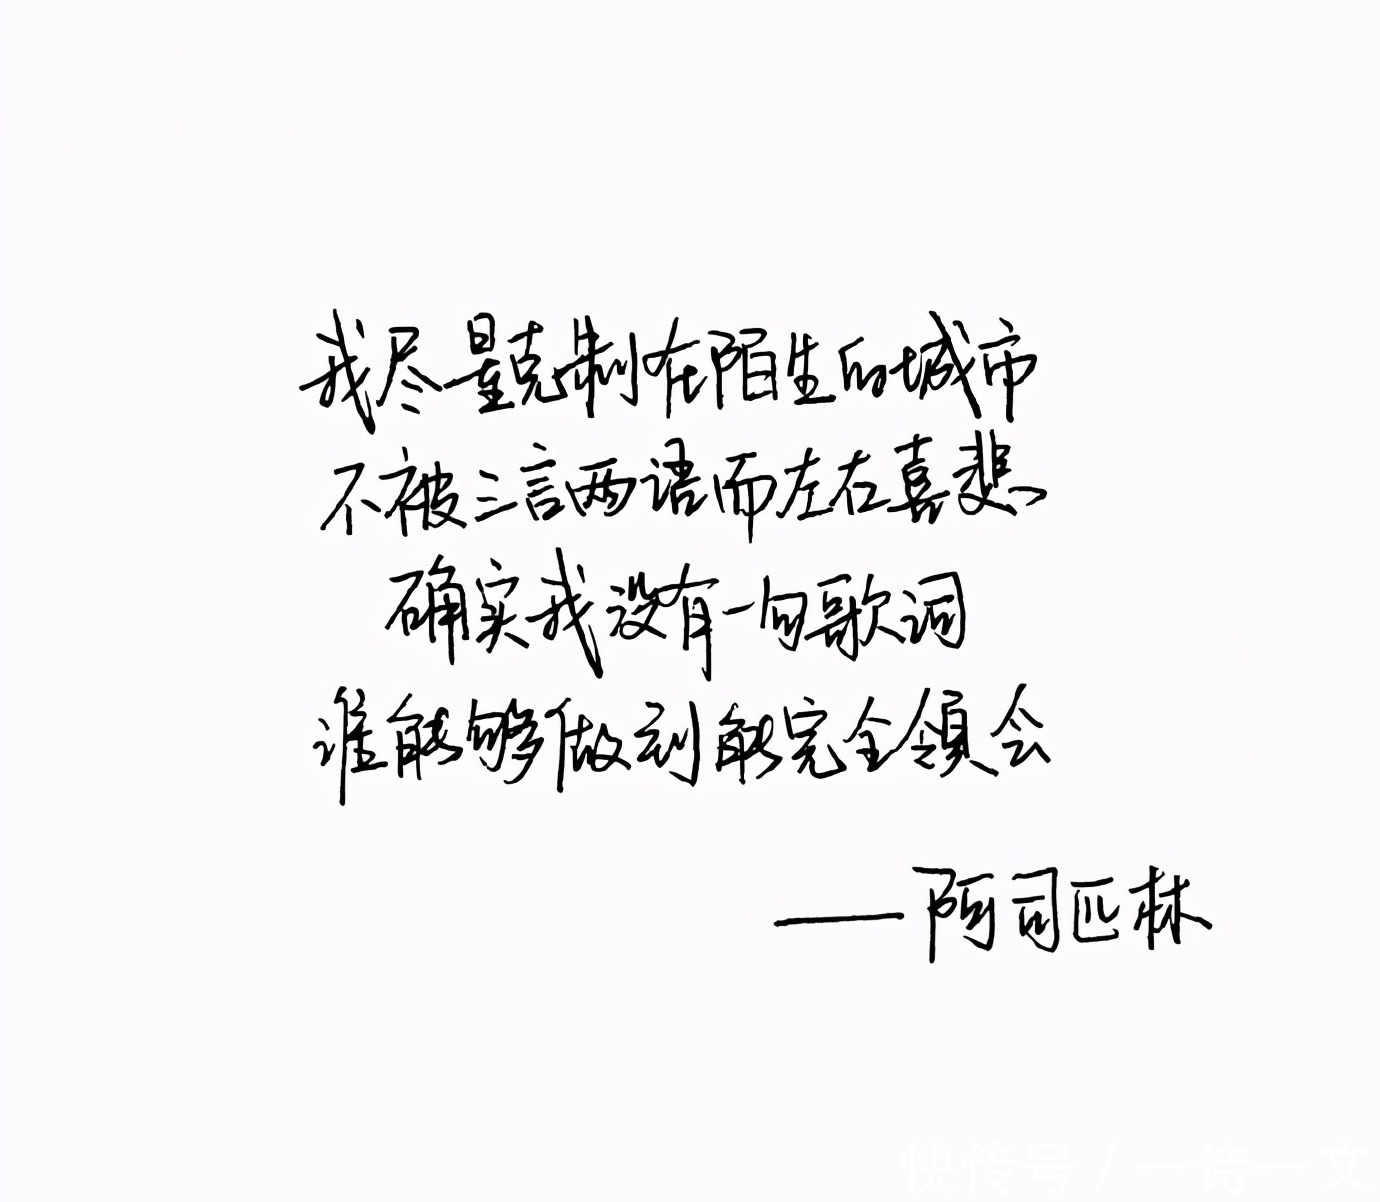 我尽量克制在陌生的城市
不被三言两语而左右喜悲
确实我没有一句歌词
谁能够做到能完全领会
——阿司匹林
快传号/一诗一文